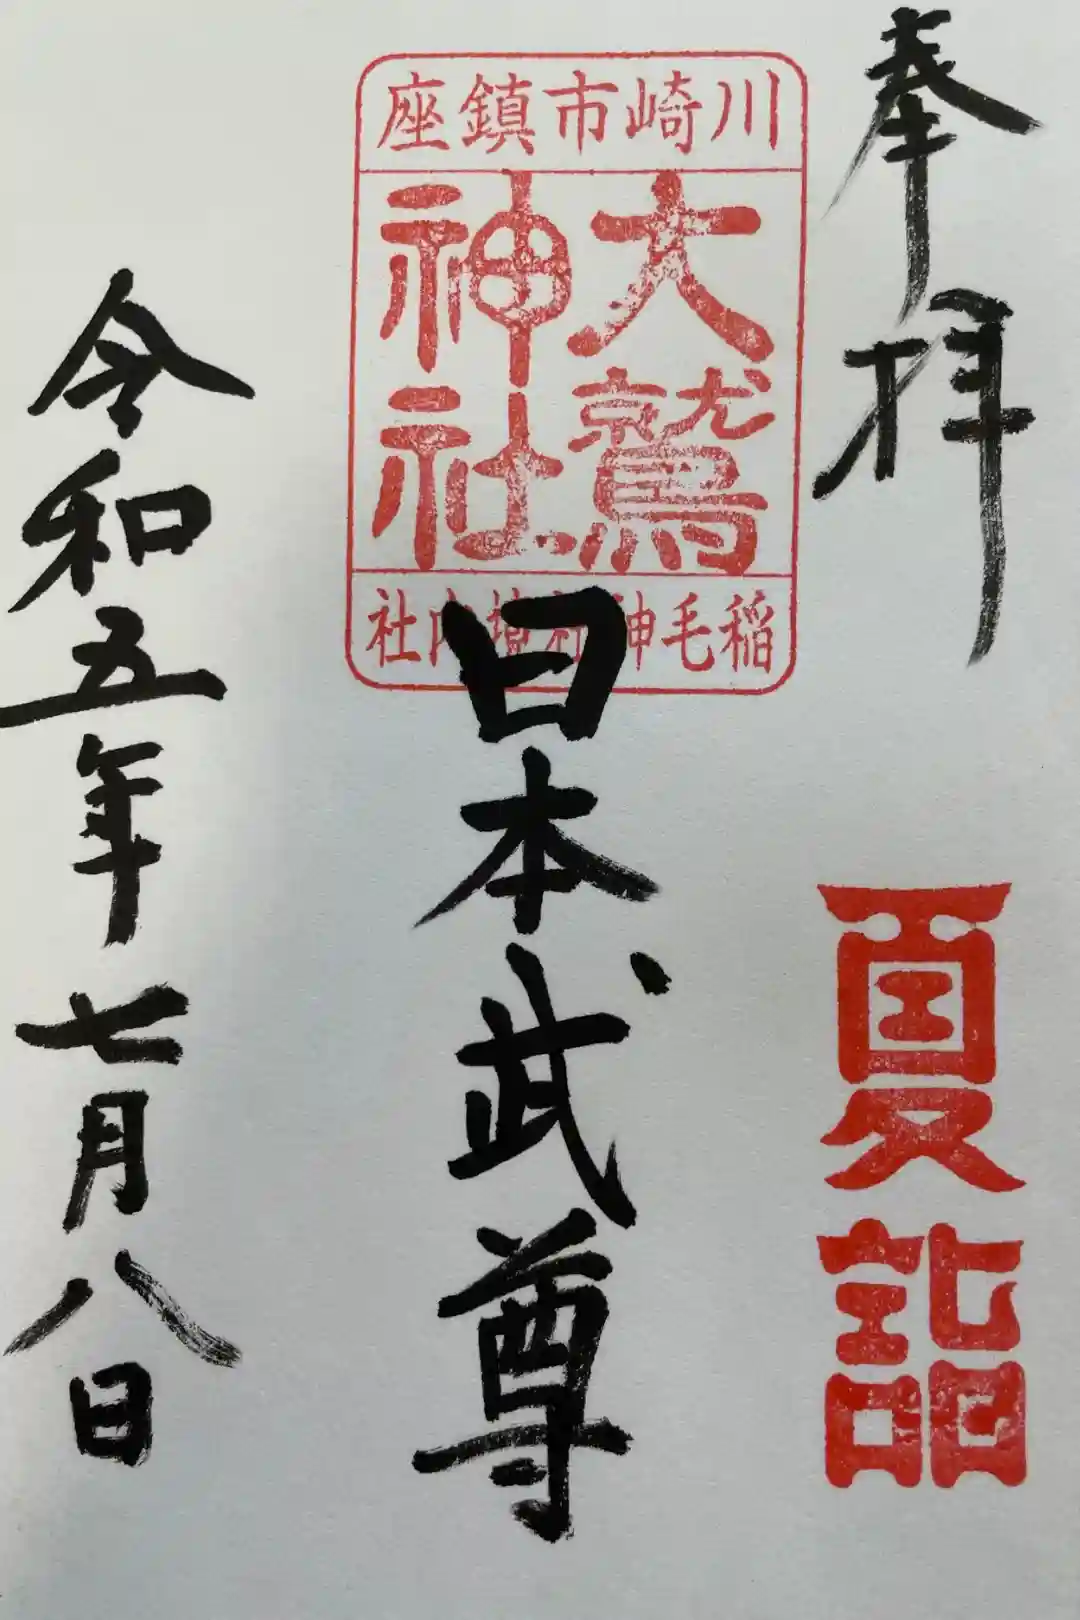 奉拝
夏詣
川崎市鎮座
大鷲
神社
稲毛神社境内社
日本武尊
令和五年七月八日